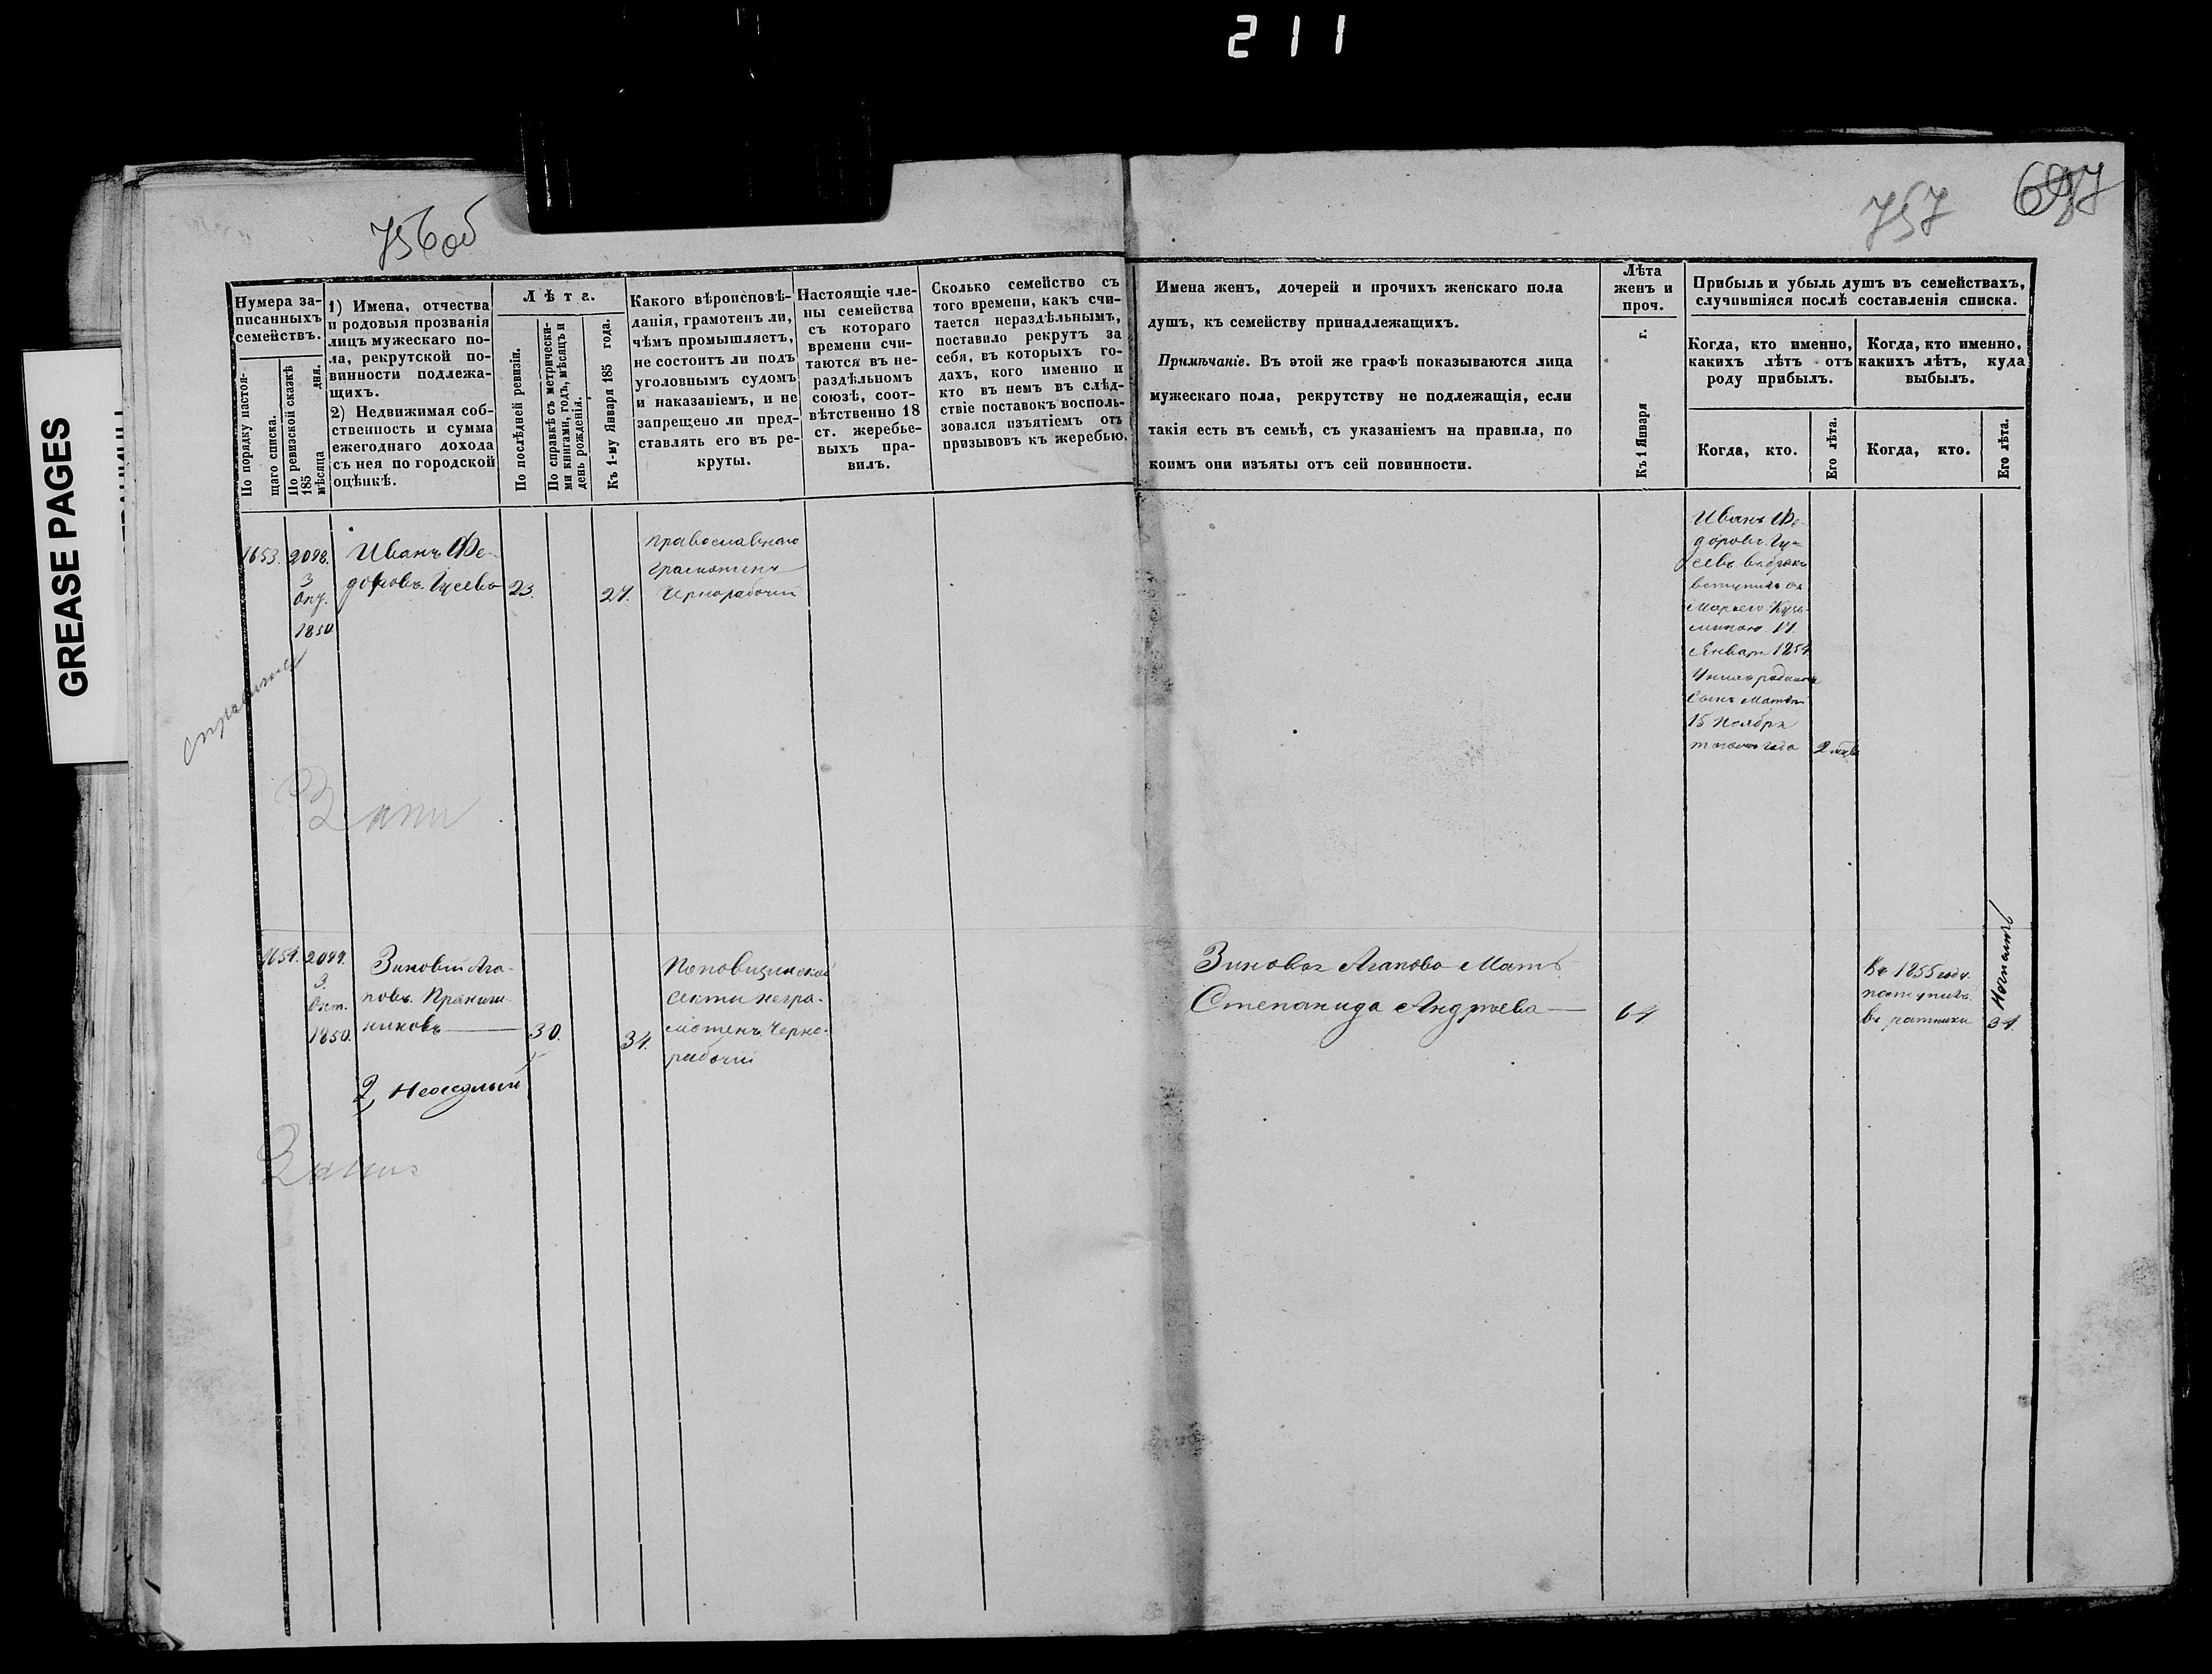 211
GREASE PAGES
756об
757
697
Нумера за-
писанныхъ
семействъ.
По порядку настоя-
щаго списка.
По ревизской сказкѣ
185 мѣсяца дня.
1) Имена, отчества
и родовыя прозванія
лицъ мужескаго по-
ла, рекрутской по-
винности подлежа-
щихъ.
2) Недвижимая соб-
ственность и сумма
ежегоднаго дохода
съ нея по городской
оцѣнкѣ.
Лѣта.
По послѣдней ревизіи.
По справкѣ съ метрически-
ми книгами, годъ, мѣсяцъ и
день рожденія.
Къ 1-му Января 185 года.
Какого вѣроисповѣ-
данія, грамотенъ ли,
чѣмъ промышляетъ,
не состоитъ ли подъ
уголовнымъ судомъ
и наказаніемъ, и не
запрещено ли пред-
ставлять его въ ре-
круты.
Настоящіе чле-
ны семейства
съ котораго
времени счи-
таются въ не-
раздѣльномъ
союзѣ, соот-
вѣтственно 18
ст. жеребье-
выхъ пра-
вилъ.
Сколько семейство съ
того времени, какъ счи-
тается нераздѣльнымъ,
поставило рекрутъ за
себя, въ которыхъ го-
дахъ, кого именно и
кто въ немъ въ слѣд-
ствіе поставокъ восполь-
зовался изъятіемъ отъ
призывовъ къ жеребью.
Имена женъ, дочерей и прочихъ женскаго пола
душъ, къ семейству принадлежащихъ.
Примѣчаніе. Въ этой же графѣ показываются лица
мужескаго пола, рекрутству не подлежащія, если
такія есть въ семьѣ, съ указаніемъ на правила, по
коимъ они изъяты отъ сей повинности.
Лѣта
женъ и
проч.
Къ 1 Января г.
Прибыль и убыль душъ въ семействахъ,
случившіяся послѣ составленія списка.
Когда, кто именно,
какихъ лѣтъ отъ
роду прибылъ.
Когда, кто именно,
какихъ лѣтъ, куда
выбылъ.
Когда, кто.
Его лѣта.
Когда, кто.
Его лѣта.
1653.
2098.
3
Окт.
1850
Иванъ Фе-
доровъ Гусевъ
23.
27.
Православнаго
Грамотенъ
Чернорабочій
Иванъ Фе-
доровъ Гу-
севъ въ бракъ
вступилъ съ
Марьею Кузь-
миною 17
Января 1854
сынъ
15 Ноября
года
1654.
2099.
3.
Окт.
1850.
Зиновій Ага-
повъ Пряниш-
никовъ
30.
34.
2, Неоседлый
Поповщинской
секты негра-
мотенъ Черно-
рабочій
Зиновья Агапова Мать
Степанида Андреева
64
Въ 1855 году
поступилъ
въ ратники
34.